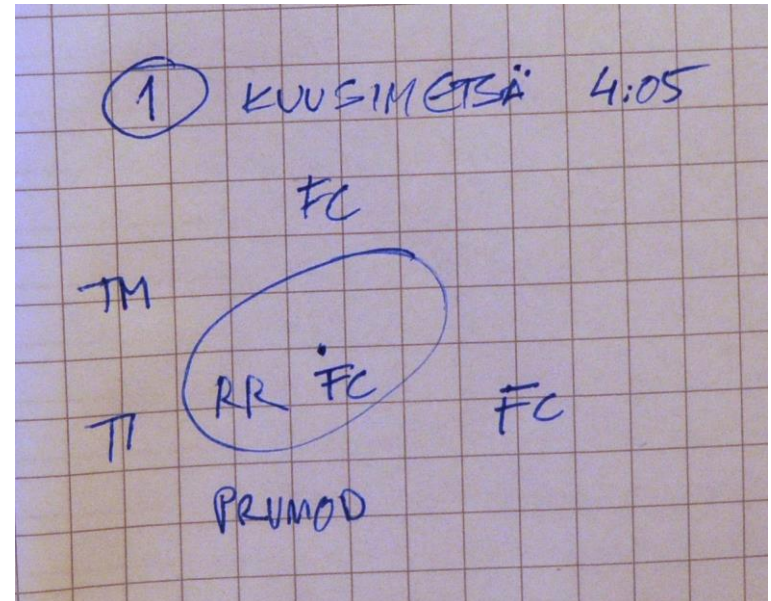 1 KUUSIMETSÄ 4:05
FC
TM
RR FC
FC
TI
PRUMOD